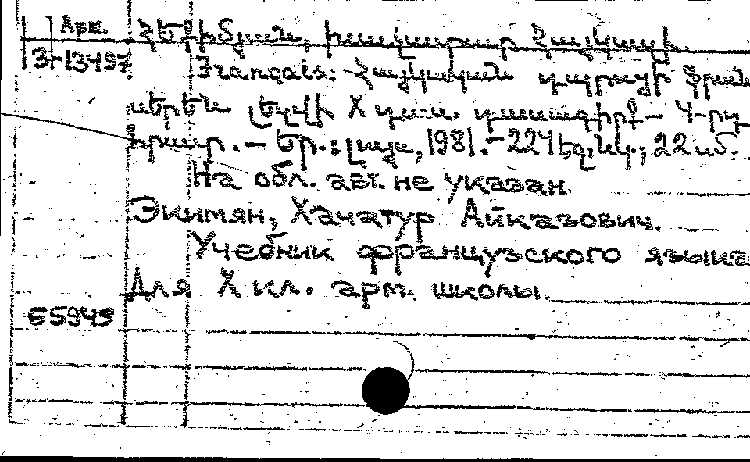 Арм.
Зг13497
Հեքիմյան, Խաչատար Հայկազի.
Français: Հայկական դպրոցի ֆրան
սերեն լեզվի X դաս. դասագիրք.— 4-րդ
հրատ.— Եր.: Լույս, 1981.— 224 էջ, նկ.; 22 սմ.
На обл. авт. не указан.
Экимян, Хачатур Айказович.
Учебник французского языка
Для X кл. арм. школы.
Е5949